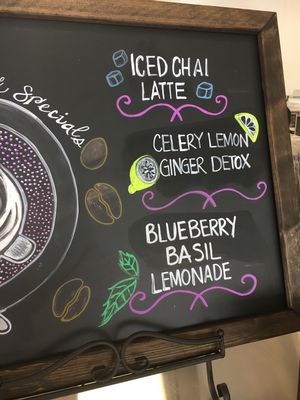 Specials
ICED CHAI
LATTE
CELERY LEMON
GINGER DETOX
BLUEBERRY
BASIL
LEMONADE